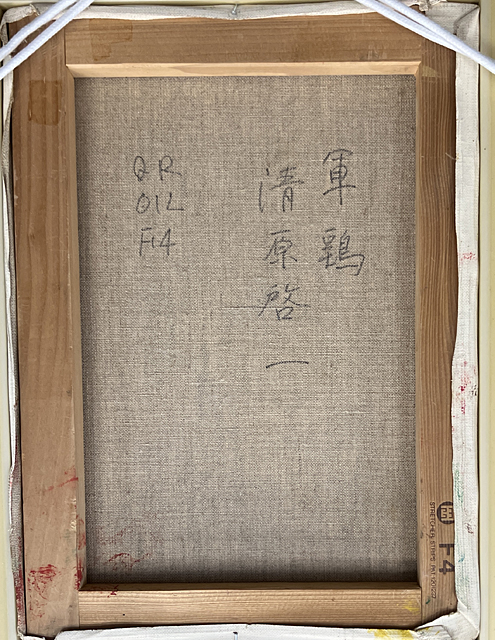 軍鶏
清原啓一
QR
OIL
F4
F4